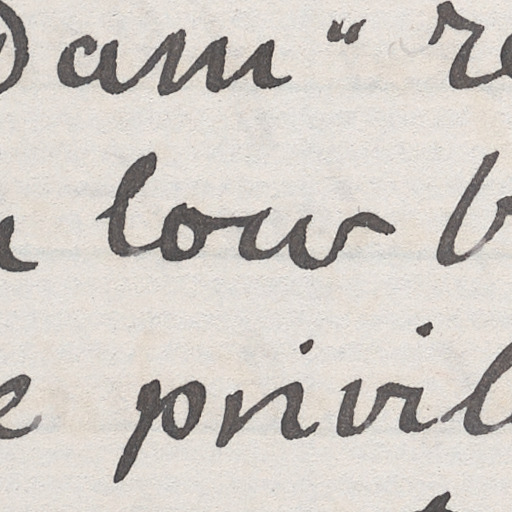 Dam" re
low b
privil